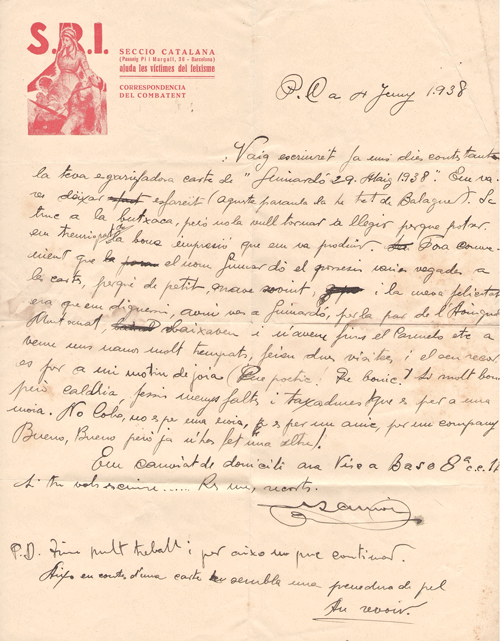 S.R.I.
SECCIO CATALANA
(Passeig Pi i Margall, 36 - Barcelona)
ajuda les víctimes del feixisme
CORRESPONDENCIA
DEL COMBATENT
P. C. a 4 Juny 1.938
Vaig escriuret fa uns dies contestant a
la teva carta de "Guinardó 29 Maig 1938". Em va
deixar (aquesta paraula la he tret de Balaguer). La
tinc a la butxaca, però no la vull tornar a llegir perque potser
em la bona impresió que em va produir.
que el nom Guinardó el vegades a
la carta, perqué de petit, i la meva felicitat
era que em diguessin, avui ves a Guinardó, per la
baixaven i fins el Carmelo etc a
veure uns molt trempats, feien dues visites, i el seu record
es per a mi motiu de joia (Que poetic! Que bonic!) molt bona
però caldria, fessis menys faltes i taxadures que es per a una
noia. No no es per una noia, es per un amic, per un company
Bueno, Bueno però ja n'hos fet una altre!
Em canviat de domicili ara Viso a Baso 8ª c.c.
Si tu vols escriure...... Res mes, records.
P.D. Tinc molt treball i per aixo no puc continuar.
Aixo en contes d'una carta sembla una de pel
Au revoir.